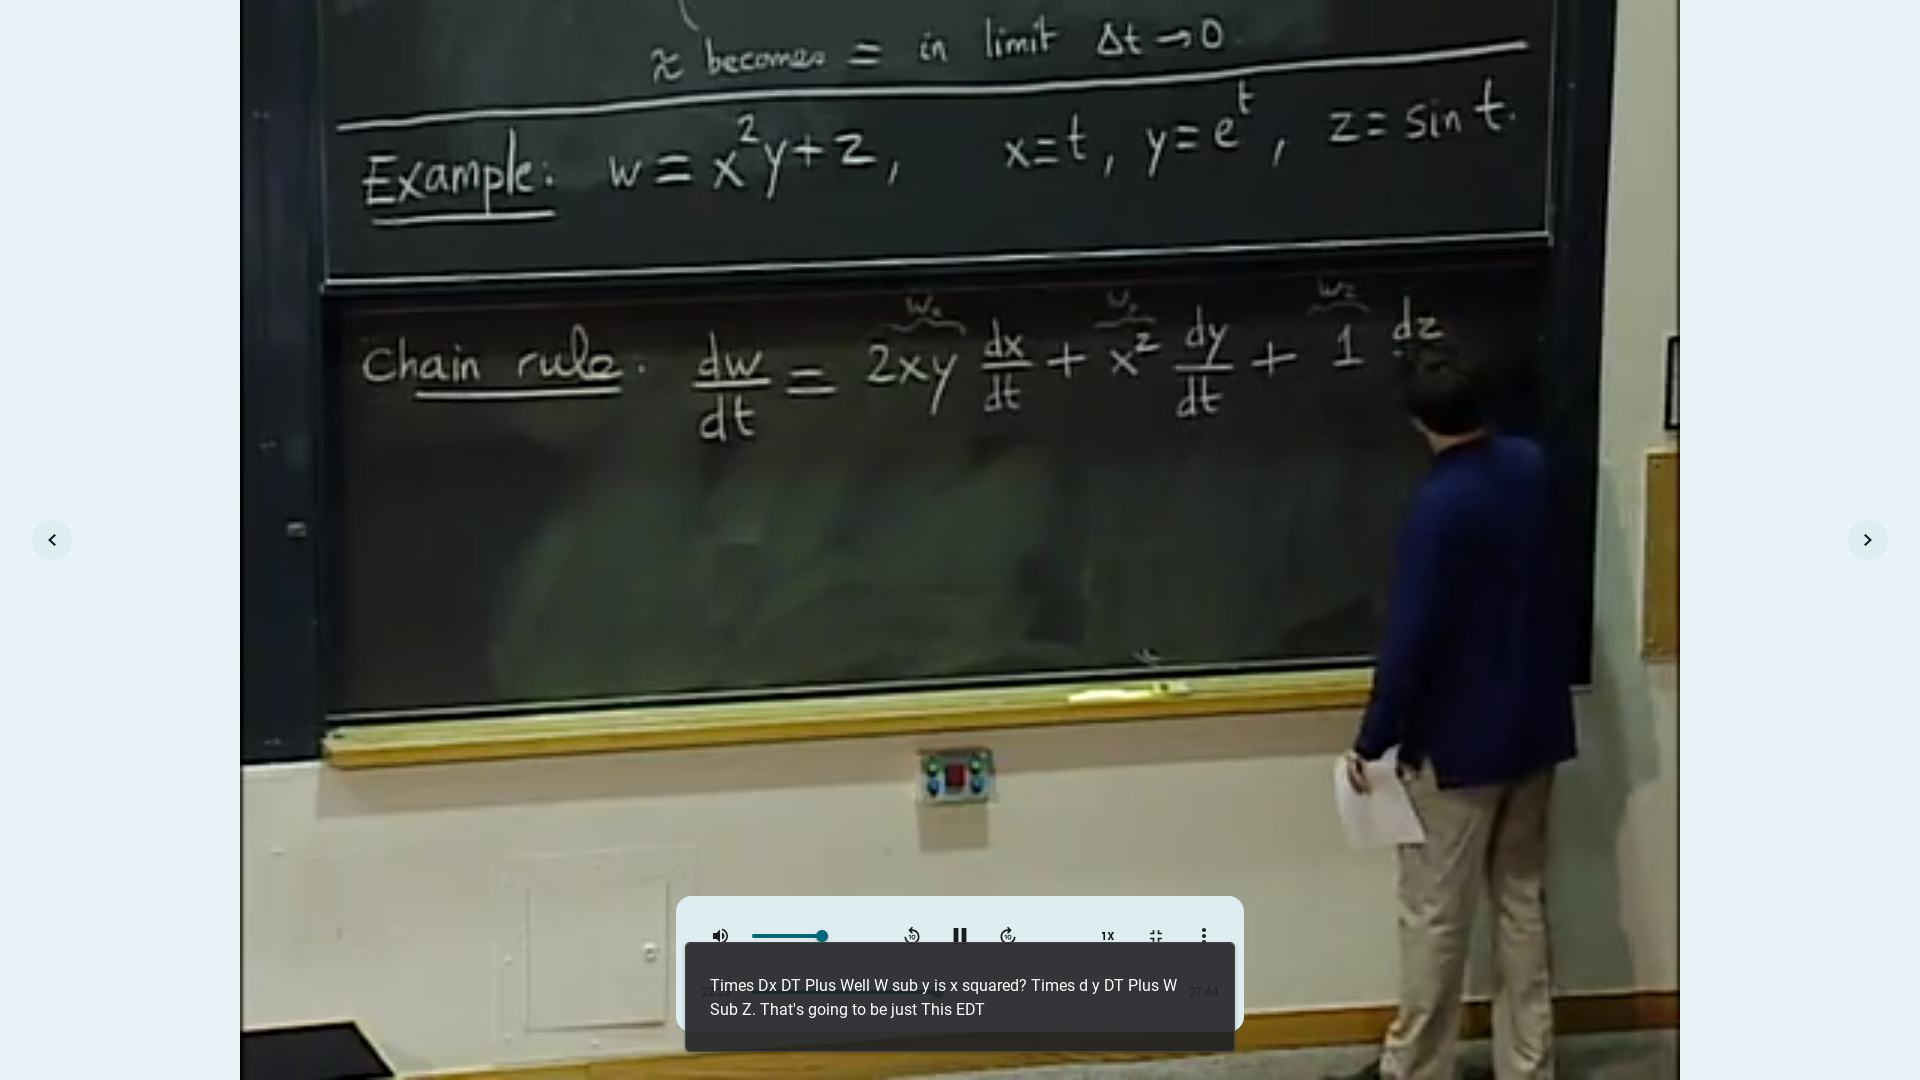 ≈ becomes = in limit Δt → 0
Example: w = x²y + z, x = t, y = e^t, z = sin t.
w_x w_y w_z
Chain rule: dw/dt = 2xy dx/dt + x² dy/dt + 1 dz
1X
Times Dx DT Plus Well W sub y is x squared? Times d y DT Plus W
Sub Z. That's going to be just This EDT
27:44